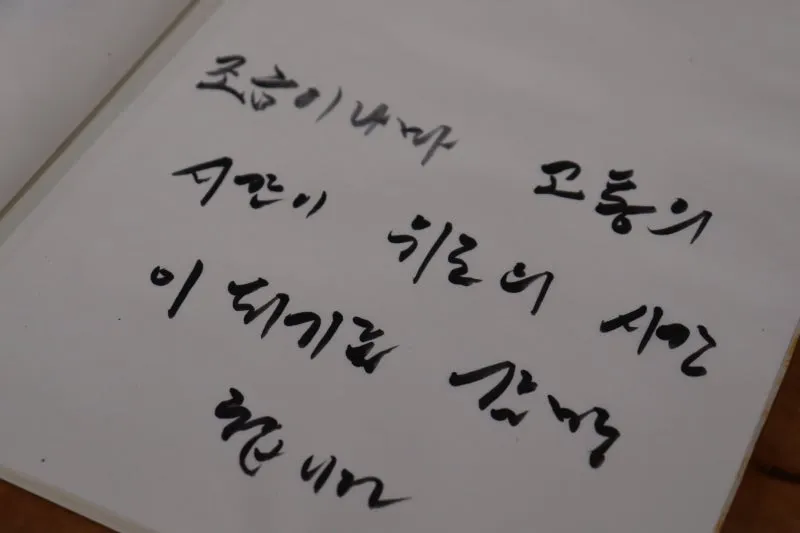 조금이나마 고통의
시간이 위로의 시간
이 되기를 소망
합니다